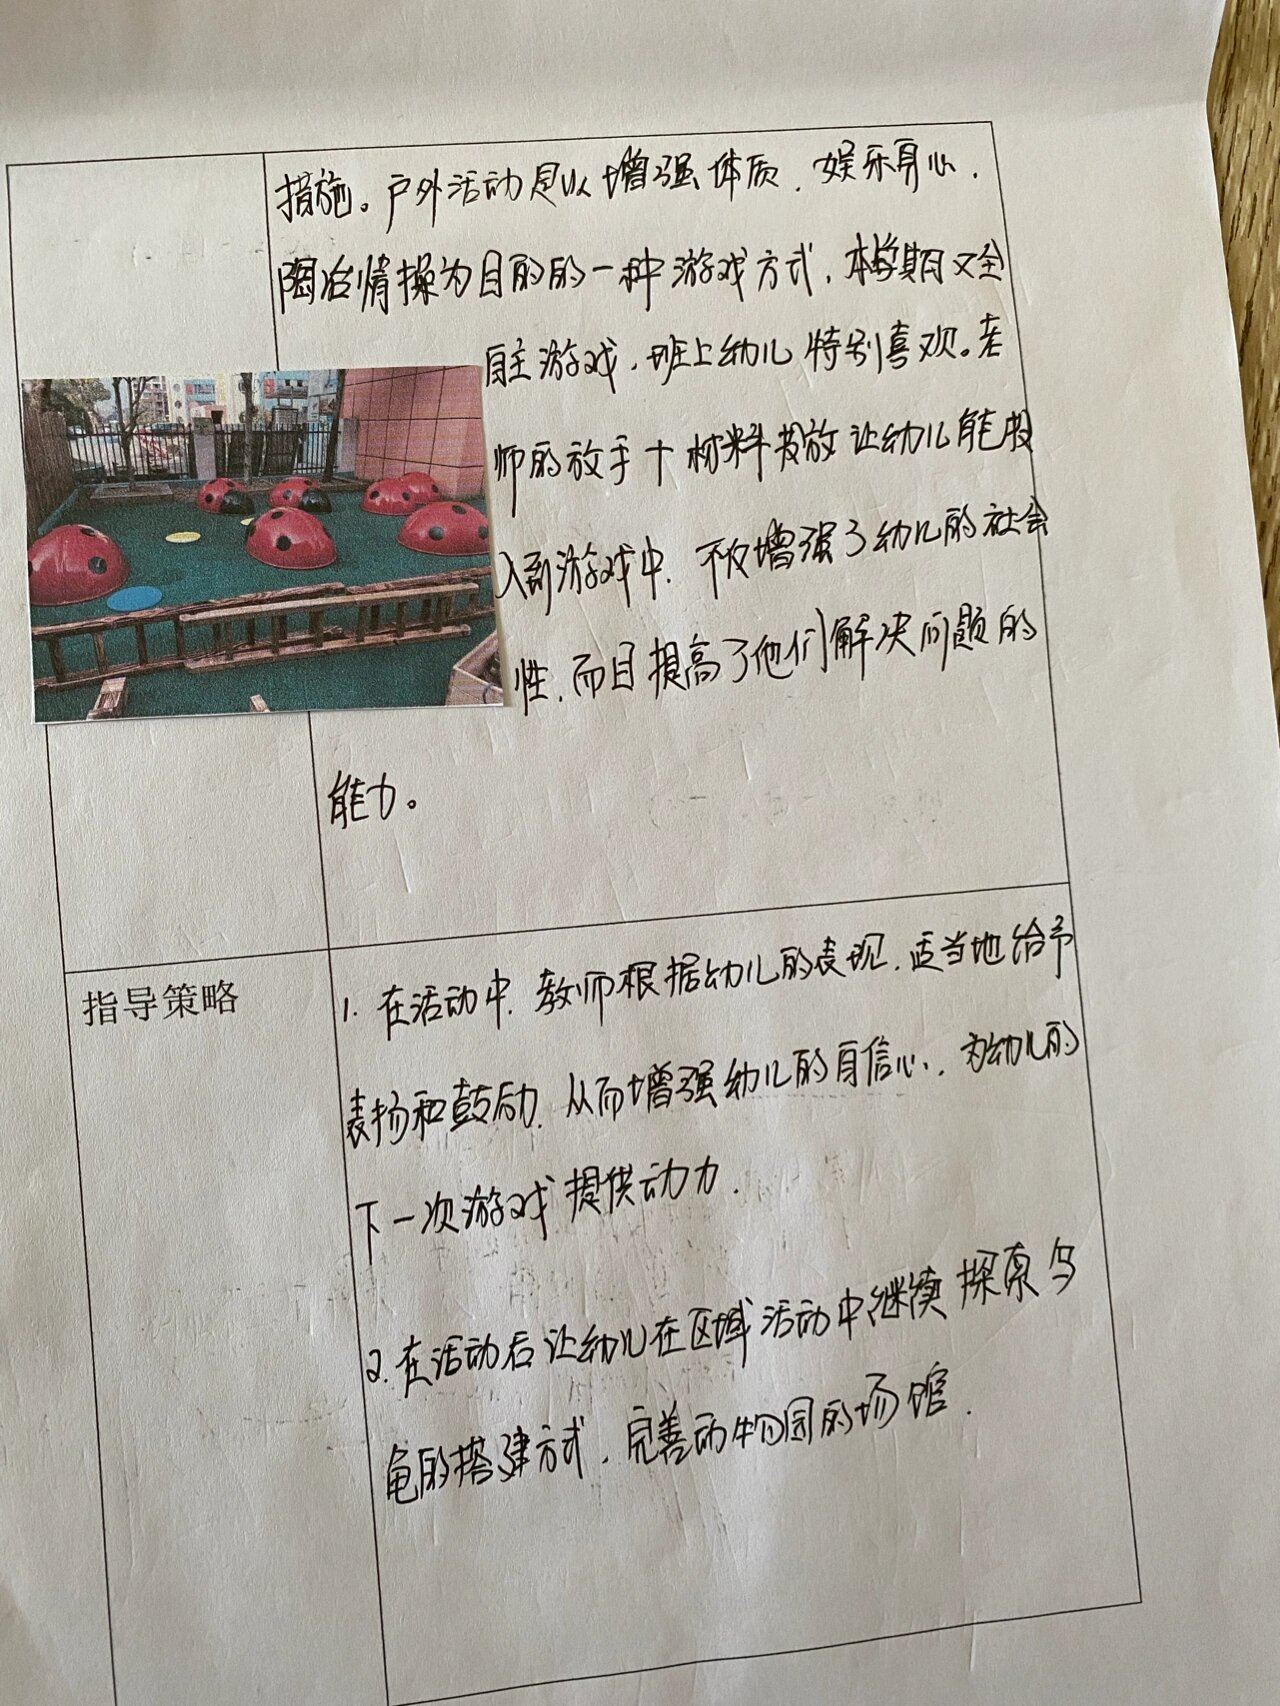 措施。户外活动是以增强体质，娱乐身心，
陶冶情操为目的的一种游戏方式，本学期又全
自主游戏，班上幼儿特别喜欢。老
师的放手+材料投放让幼儿能投
入到游戏中，不仅增强了幼儿的社会
性，而且提高了他们解决问题的
能力。
指导策略
1. 在活动中，教师根据幼儿的表现，适当地给予
表扬和鼓励，从而增强幼儿的自信心，为幼儿的
下一次游戏提供动力．
2. 在活动后让幼儿在区域活动中继续探索乌
龟的搭建方式，完善动物园的场馆．